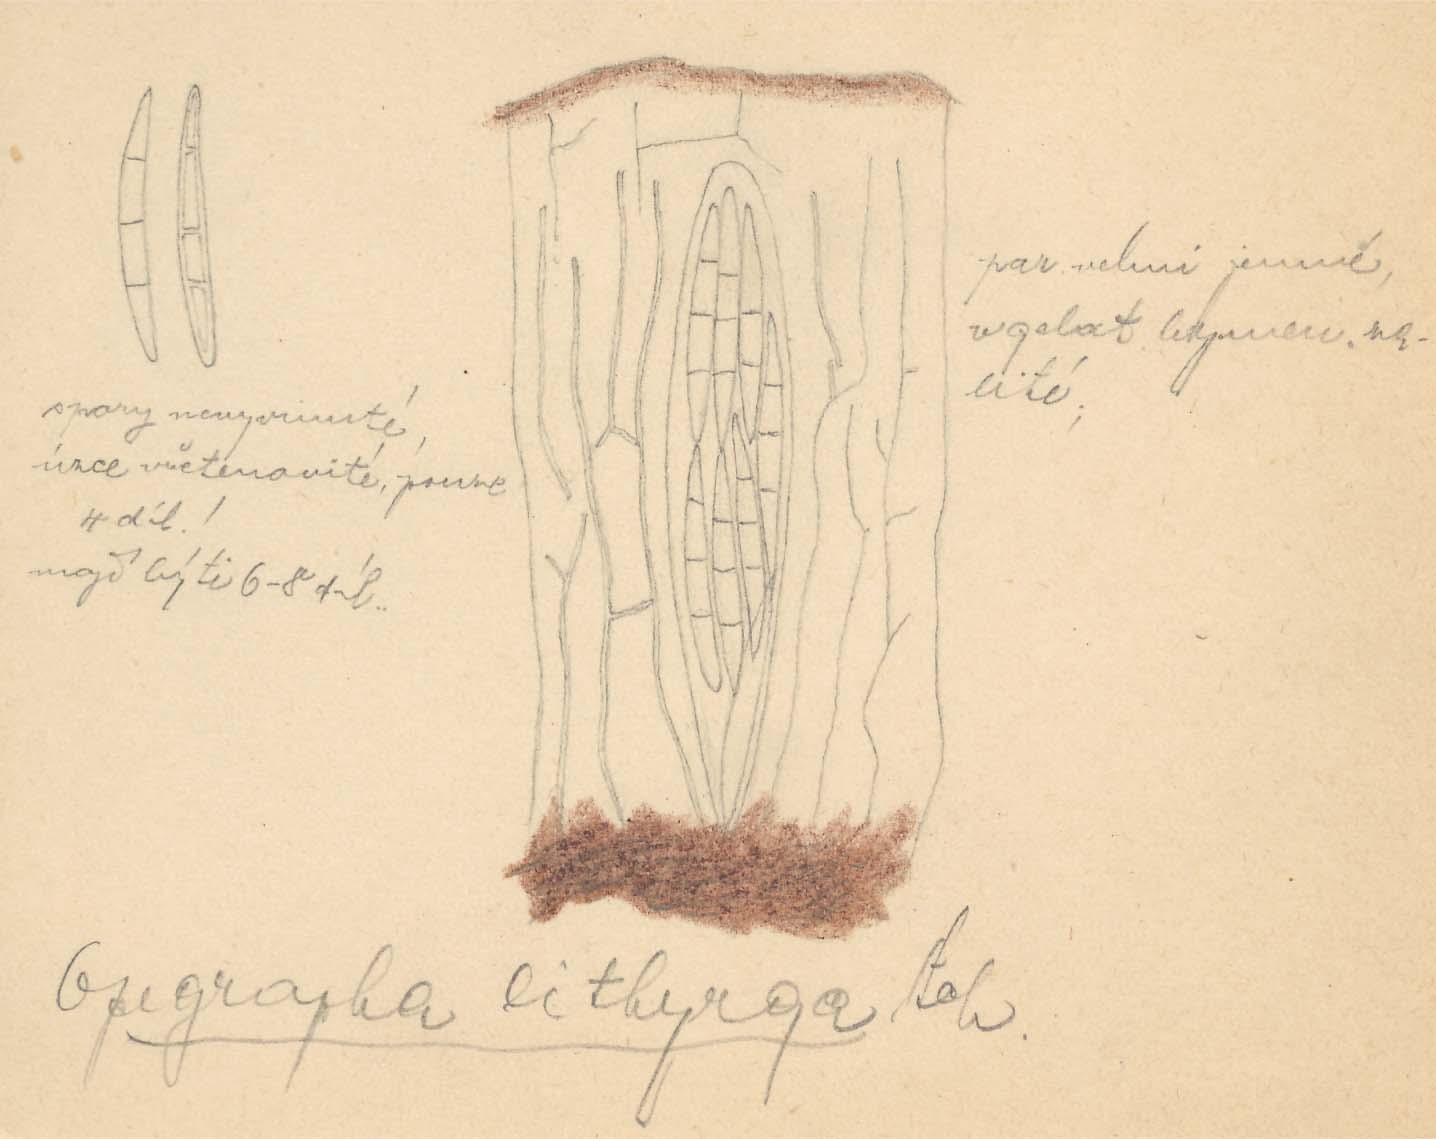 spory nevyvinuté,
úzce vřetenovité, pouze
4 díl.!
mají býti 6-8 díl..
par. velmi jemné,
v gelat. hymen. za-
lité;
Opegrapha lithyrga